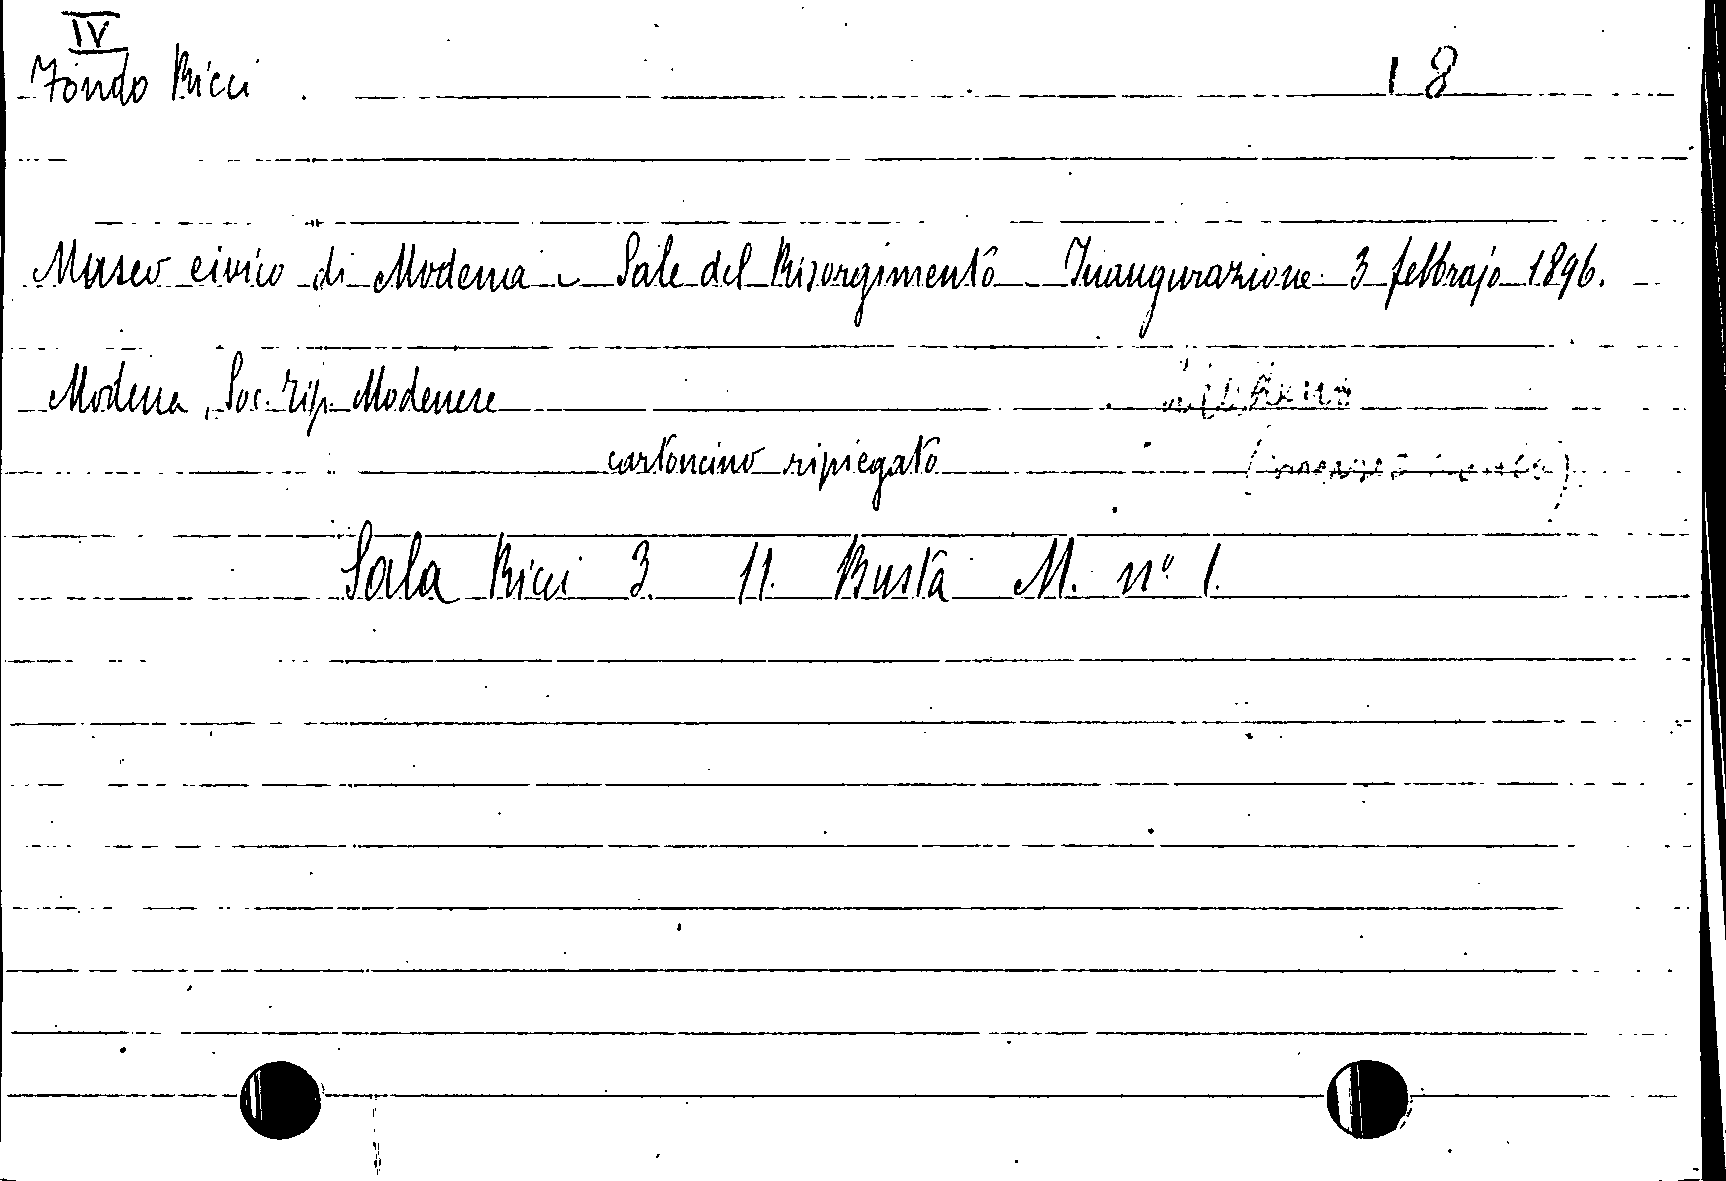 IV
Fondo Ricci 18
Museo civico di Modena - Sale del Risorgimento - Inaugurazione 3 febbrajo 1896.
Modena, Soc. Tip. Modenese
cartoncino ripiegato
Sala Ricci 3. 11. Busta M. nº 1.